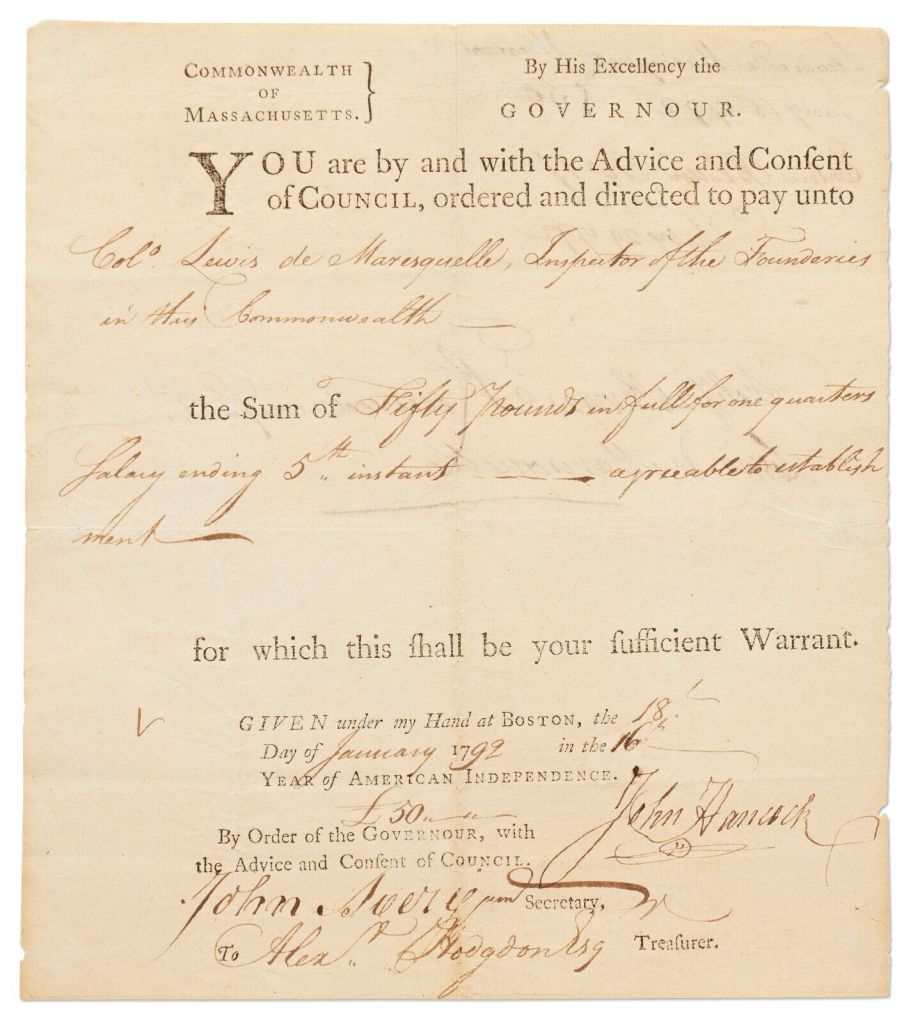 COMMONWEALTH
OF
MASSACHUSETTS.
By His Excellency the
GOVERNOUR.
YOU are by and with the Advice and Conſent
of COUNCIL, ordered and directed to pay unto
Colo. Lewis de Maresquelle, Inspector of the Founderies
in this Commonwealth
the Sum of Fifty Pounds in full for one quarters
Salary ending 5th instant agreeable to establish
ment
for which this ſhall be your ſufficient Warrant.
GIVEN under my Hand at BOSTON, the 18th
Day of January 1792 in the 16th
YEAR of AMERICAN INDEPENDENCE.
£50
John Hancock
By Order of the GOVERNOUR, with
the Advice and Conſent of COUNCIL.
John Avery junr Secretary,
To Alexr Hodgdon Esq Treaſurer.